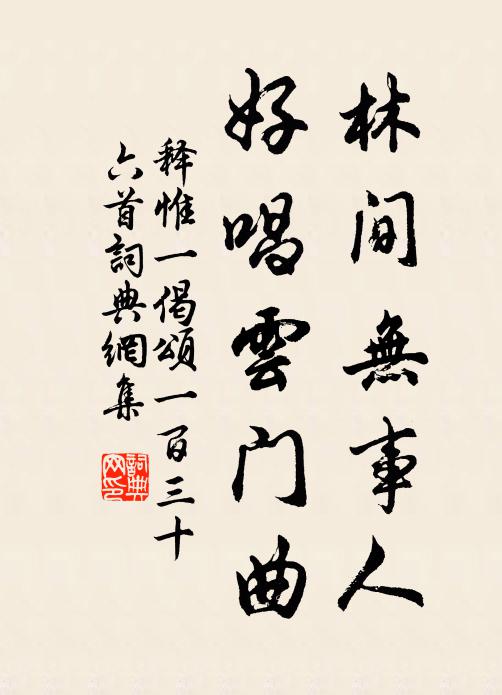 林间無事人
好唱雲门曲
释惟一偈頌一百三十
六首詞典網集
詞典
网印